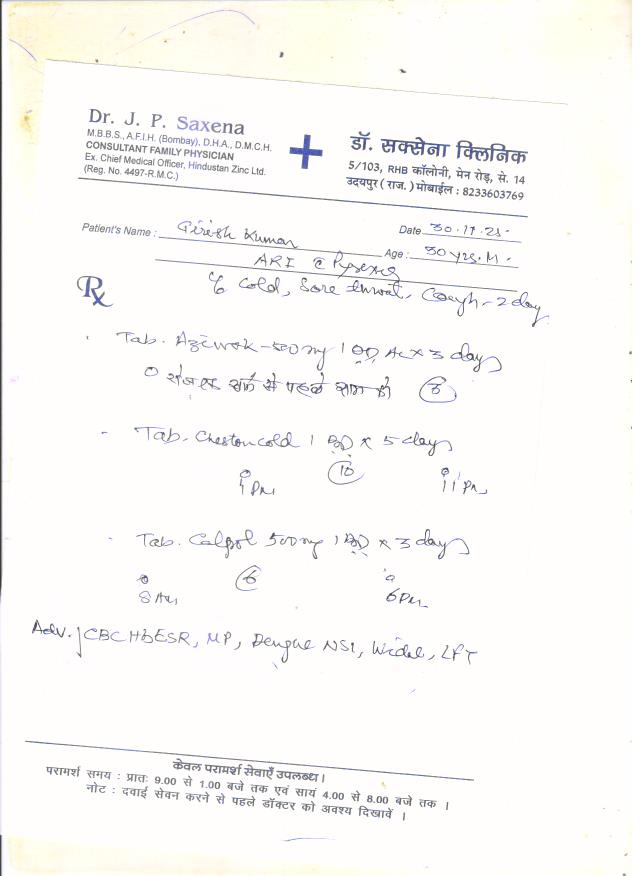 Dr. J. P. Saxena
M.B.B.S., A.F.I.H. (Bombay), D.H.A., D.M.C.H.
CONSULTANT FAMILY PHYSICIAN
Ex. Chief Medical Officer, Hindustan Zinc Ltd.
(Reg. No. 4497-R.M.C.)
डॉ. सक्सेना क्लिनिक
5/103, RHB कॉलोनी, मेन रोड़, से. 14
उदयपुर ( राज. ) मोबाईल : 8233603769
Patient's Name : Kumar
Date 30.11.25
Age : 30 yrs. M.
ARI c Pyrexia
Rx
c/o Cold, Sore throat, Cough - 2 day
Tab. Aziwok - 500 mg 1 OD AC x 3 days
से पहले शाम को
Tab. Cheston cold 1 BD x 5 days
10
11 Pm
Tab. Calpol 500 mg 1 BD x 3 days
6
8 Am
6 Pm
Adv. CBC Hb ESR, MP, Dengue NS1, Widal, LFT
केवल परामर्श सेवाएँ उपलब्ध।
परामर्श समय : प्रातः 9.00 से 1.00 बजे तक एवं सायं 4.00 से 8.00 बजे तक ।
नोट : दवाई सेवन करने से पहले डॉक्टर को अवश्य दिखावें ।